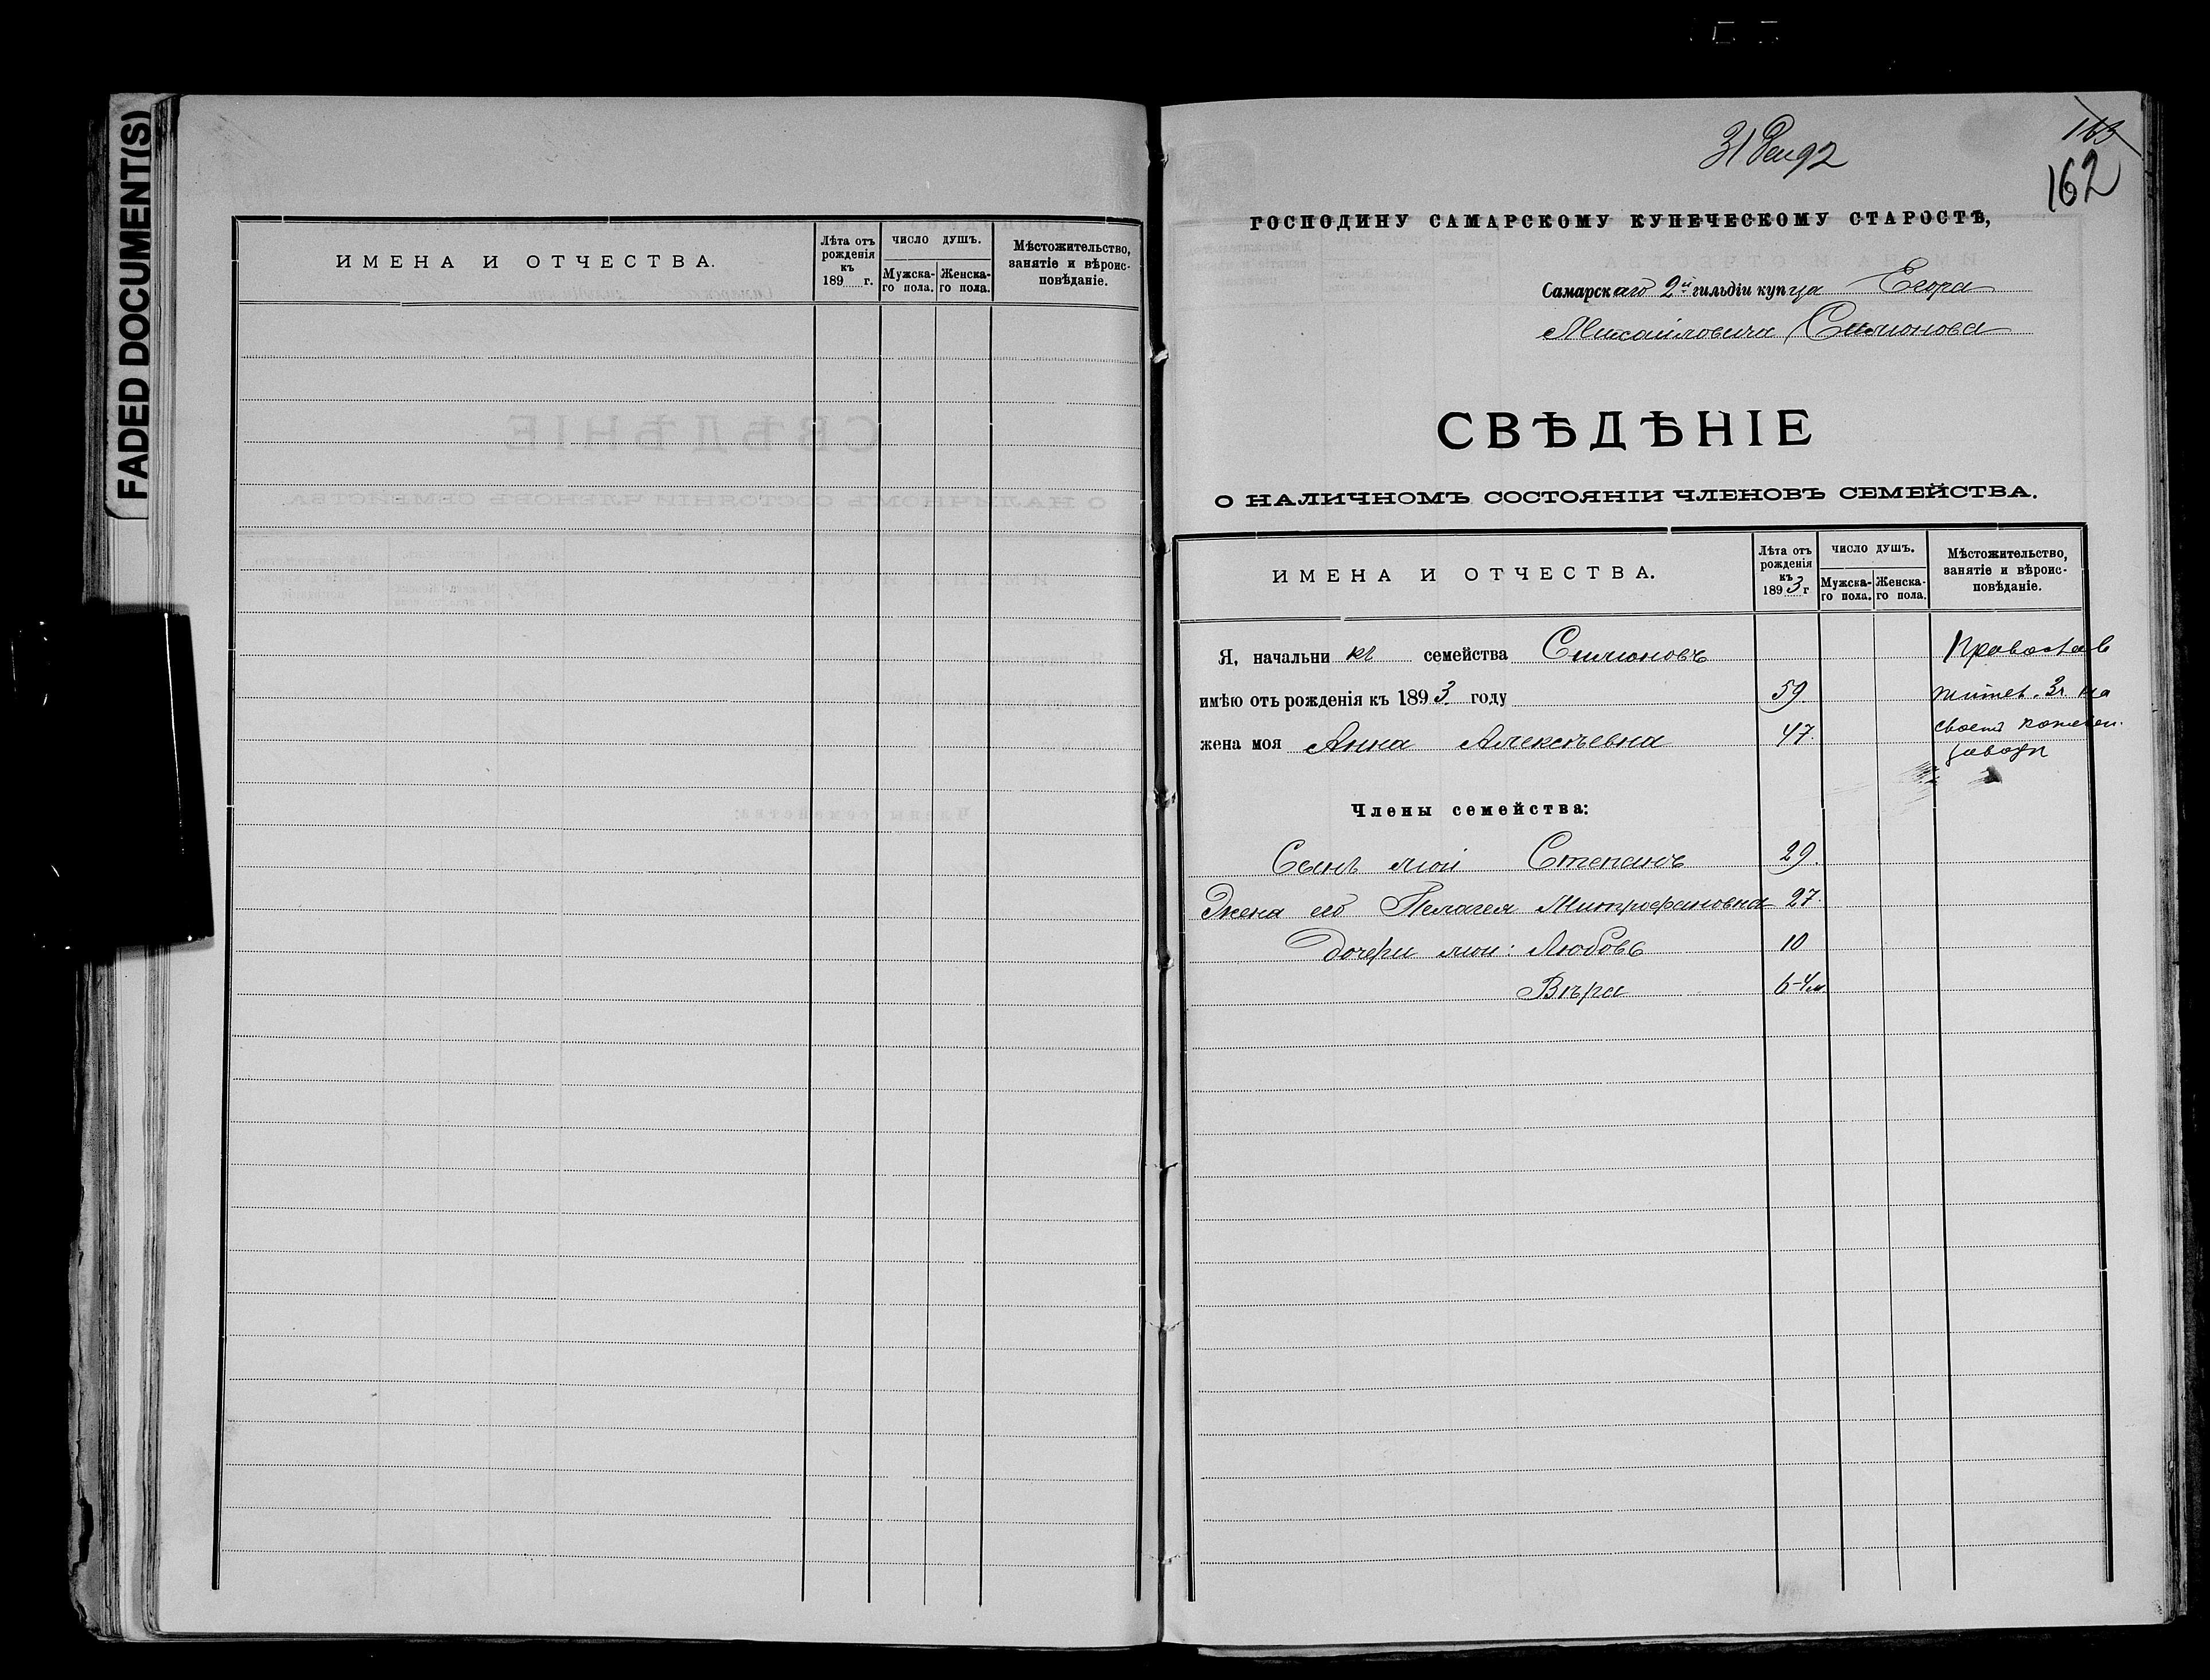 FADED DOCUMENT(S)
ИМЕНА И ОТЧЕСТВА.
Лѣта отъ рожденія къ 189 г.
ЧИСЛО ДУШЪ.
Мужска-го пола.
Женска-го пола.
Мѣстожительство, занятіе и вѣроис-повѣданіе.
31 Дек 92
163
162
ГОСПОДИНУ САМАРСКОМУ КУПЕЧЕСКОМУ СТАРОСТѢ,
Самарскаго 2й гильдіи купца Егора
Михайловича Симонова
СВѢДѢНІЕ
О НАЛИЧНОМЪ СОСТОЯНІИ ЧЛЕНОВЪ СЕМЕЙСТВА.
ИМЕНА И ОТЧЕСТВА.
Лѣта отъ рожденія къ 1893 г
ЧИСЛО ДУШЪ.
Мужска-го пола.
Женска-го пола.
Мѣстожительство, занятіе и вѣроис-повѣданіе.
Я, начальникъ семейства Симоновъ Православ
имѣю отъ рожденія къ 1893 году 59. на
жена моя Анна Алексѣевна 47. своемъ кожевен.
заводѣ
Члены семейства:
Сынъ мой Степанъ 29.
Жена его Пелагея Митрофановна 27.
Дочери мои: Любовь 10
Вѣра 6-4м.